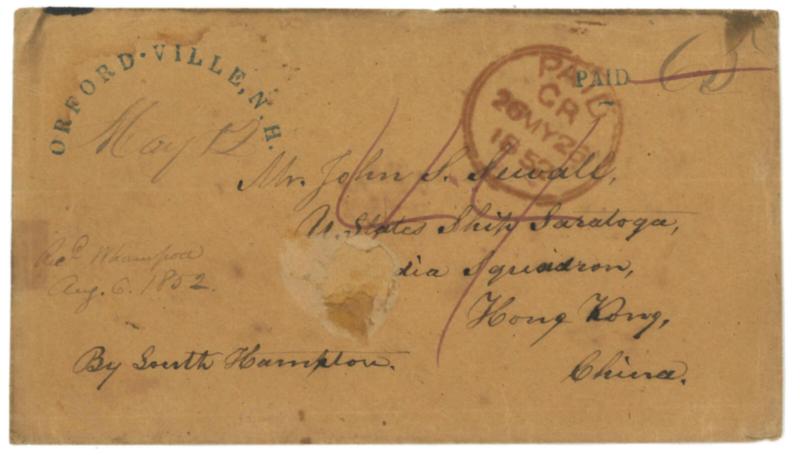 ORFORD-VILLE, N.H.
May 12
PAID
65
PAID
CR
26MY26
1852
Mr. John S. Sewall,
U. States Ship Saratoga,
dia Squadron,
Hong Kong,
China.
Recd Whampoa
Aug. 6. 1852.
By South Hampton.